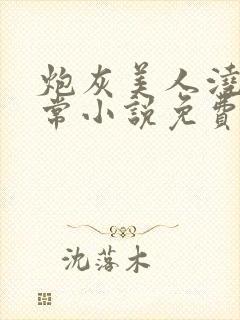 炮灰美人澆
常小說免費
沈落木